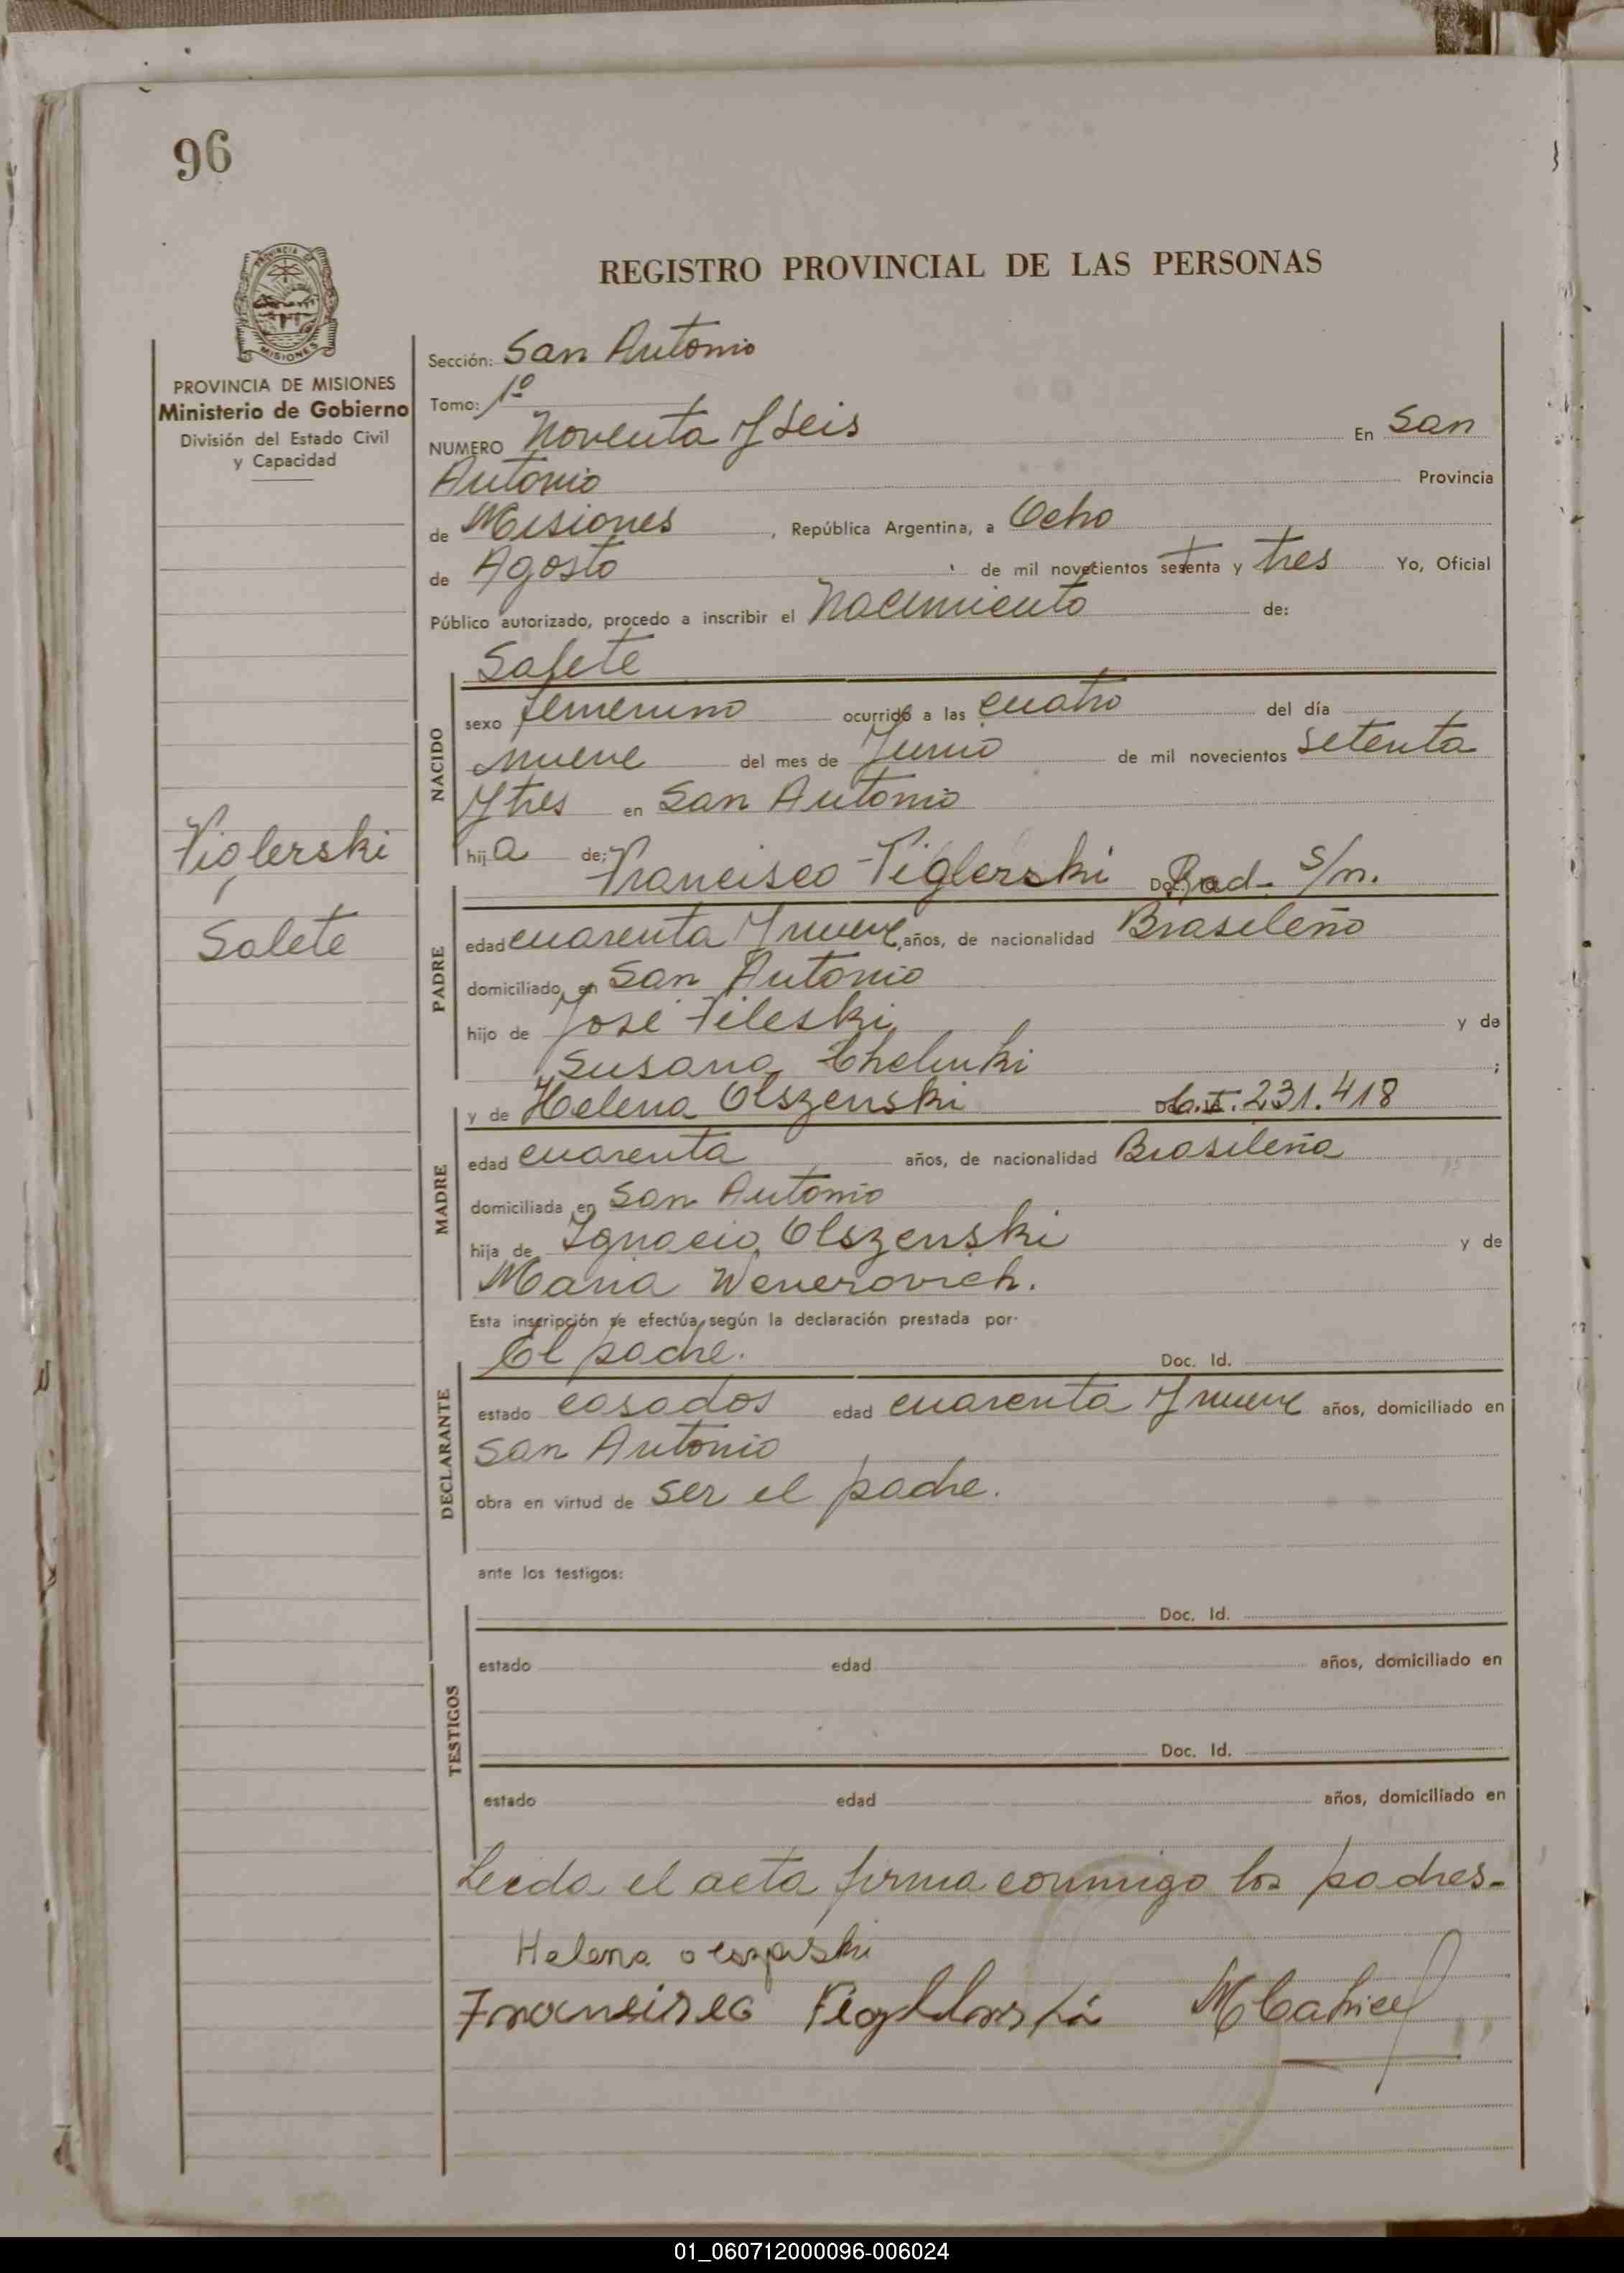 96
REGISTRO PROVINCIAL DE LAS PERSONAS
PROVINCIA
MISIONES
PROVINCIA DE MISIONES
Ministerio de Gobierno
División del Estado Civil
y Capacidad
Figlerski
Salete
Sección: San Antonio
Tomo: 1º
NUMERO Noventa y Seis En San
Antonio Provincia
de Misiones, República Argentina, a Ocho
de Agosto de mil novecientos setenta y tres Yo, Oficial
Público autorizado, procedo a inscribir el Nacimiento de:
Salete
NACIDO
sexo femenino ocurrido a las cuatro del día
nueve del mes de Junio de mil novecientos setenta
y tres en San Antonio
hija de: Francisco Figlerski Rad- S/n.
PADRE
edad cuarenta y nueve, años, de nacionalidad Brasileño
domiciliado en San Antonio
hijo de José Fileski y de
Susana Chelinki ;
y de Helena Olszenski 231.418
MADRE
edad cuarenta años, de nacionalidad Brasileña
domiciliada en San Antonio
hija de Ignacio Olszenski y de
Maria Wenerovich.
Esta inscripción se efectúa según la declaración prestada por.
El padre. Doc. Id.
DECLARANTE
estado casados edad cuarenta y nueve años, domiciliado en
San Antonio
obra en virtud de ser el padre.
ante los testigos:
Doc. Id.
TESTIGOS
estado edad años, domiciliado en
Doc. Id.
estado edad años, domiciliado en
Leida el acta firma conmigo los padres.-
Helena
Fransisco
01_060712000096-006024